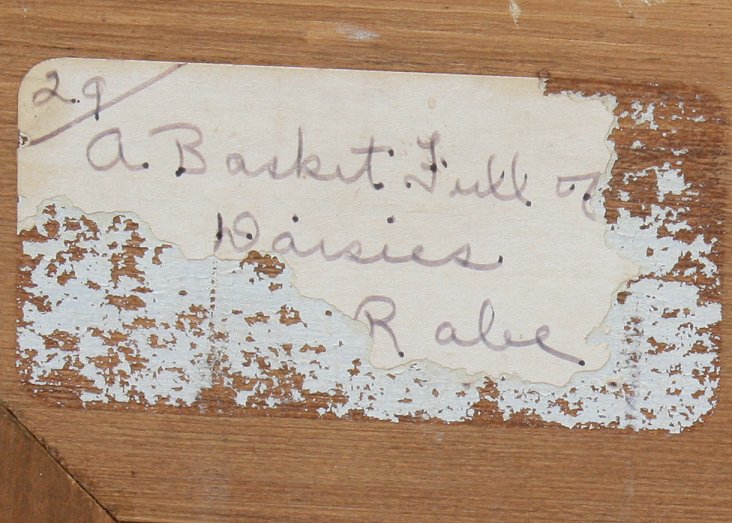 29
A Basket Full of
Daisies
Rabe